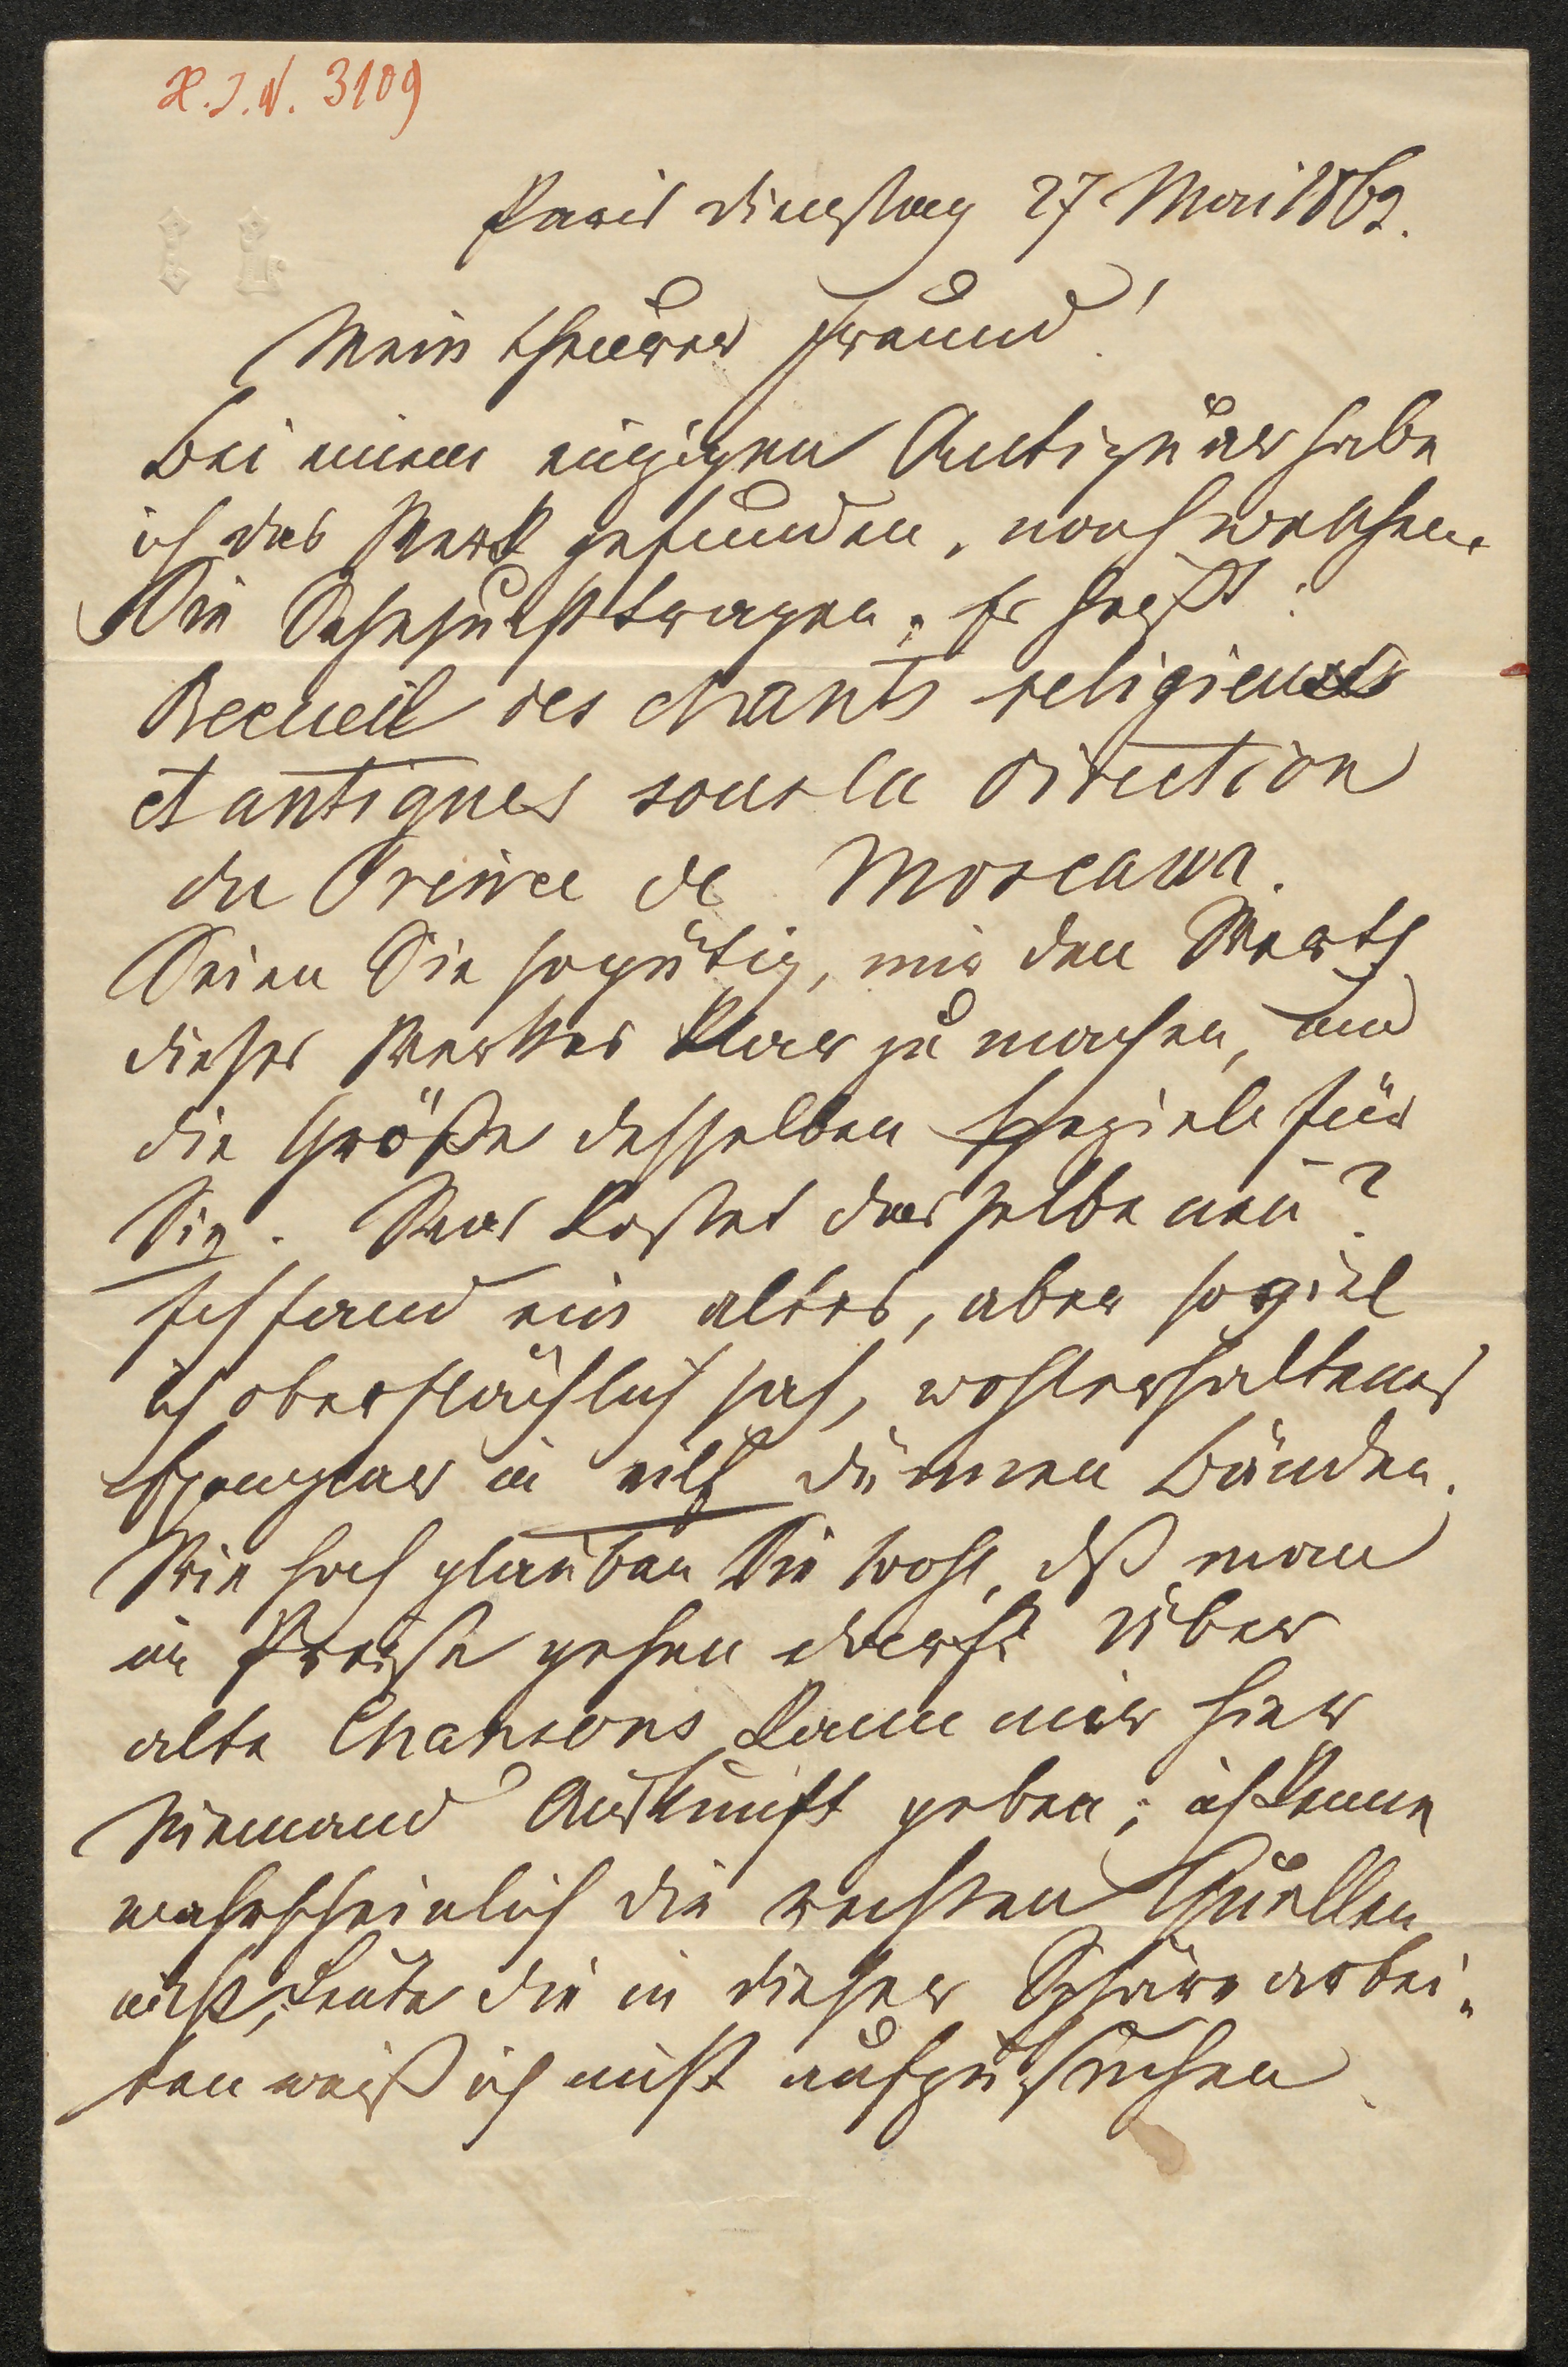 H.I.N. 3109
Paris Dienstag 27 Mai 1862.
Mein theurer Freund!
Bei einem einzigen Antiquar habe
ich das Werk gefunden, nach welchem
Sie Sehnsucht tragen; Es heißt:
Recueil des chants religieux
et antiques sous la direction
du Prince de Moscawa.
Seien Sie so gütig, mir den Werth
dieses Werkes klar zu machen, und
die Größe desselben speziell für
Sie. Was kostet dasselbe neu?
Ich fand ein altes, aber so viel
ich oberflächlich sah, wohlerhaltenes
Exemplar in eilf dünnen Bänden.
Wie hoch glauben Sie wohl, dß man
im Preise gehen darf? Über
alte Chansons kann mir hier
Niemand Auskunft geben; ich kenne
wahrscheinlich die rechten Quellen
nicht; Leute die in dieser Sphäre arbei-
ten weiß ich nicht aufzusuchen.